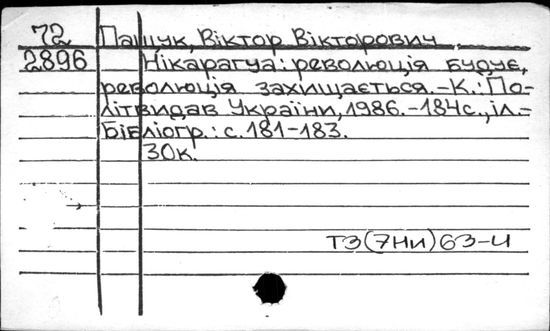 72 Пащук, Віктор Вікторович
2896 Нікарагуа: революція будує,
революція захищається.-К.: По-
літвидав України, 1986.-184с., іл.-
Бібліогр.: с. 181-183.
30к.
Т3(7Ни)63-4